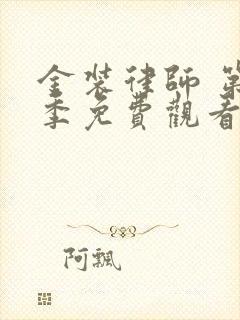 金装律師 第
季免費觀看
阿飄